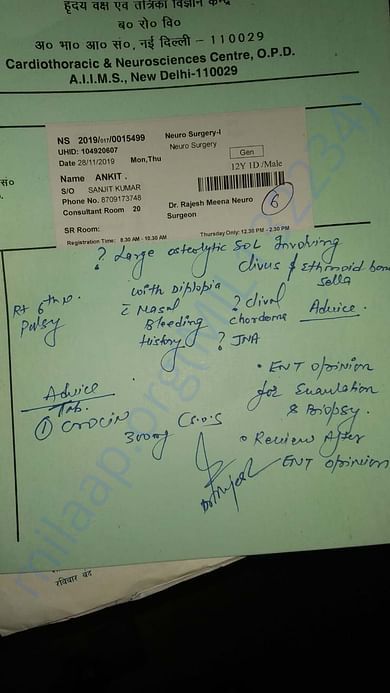 हृदय वक्ष एवं तंत्रिका विज्ञान केन्द्र
ब० रो० वि०
अ० भा० आ० सं०, नई दिल्ली - 110029
Cardiothoracic & Neurosciences Centre, O.P.D.
A.I.I.M.S., New Delhi-110029
NS 2019/017/0015499 Neuro Surgery-I
UHID: 104920607 Neuro Surgery
Date 28/11/2019 Mon,Thu Gen
Name ANKIT . 12Y 1D /Male
S/O SANJIT KUMAR
Phone No. 8709173748
Consultant Room 20 Dr. Rajesh Meena Neuro Surgeon
6
SR Room:
Registration Time: 8.30 AM - 10.30 AM Thursday Only: 12.30 PM - 2.30 PM
सं०
? Large osteolytic SOL Involving
clivus & Ethmoid bone
sella
Rt 6th n.
Palsy
with Diplopia
c Nasal
Bleeding
History
? clival
chordoma
? JNA
Advice
• ENT opinion
for Evaulation
& Biopsy.
• Review After
ENT opinion
Advice
Tab.
① CROCIN
300mg S.O.S
milaap.org
रविवार बंद